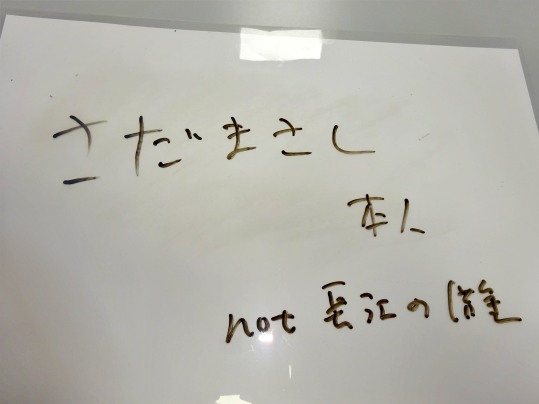 さだまさし
本人
not 長江の誰